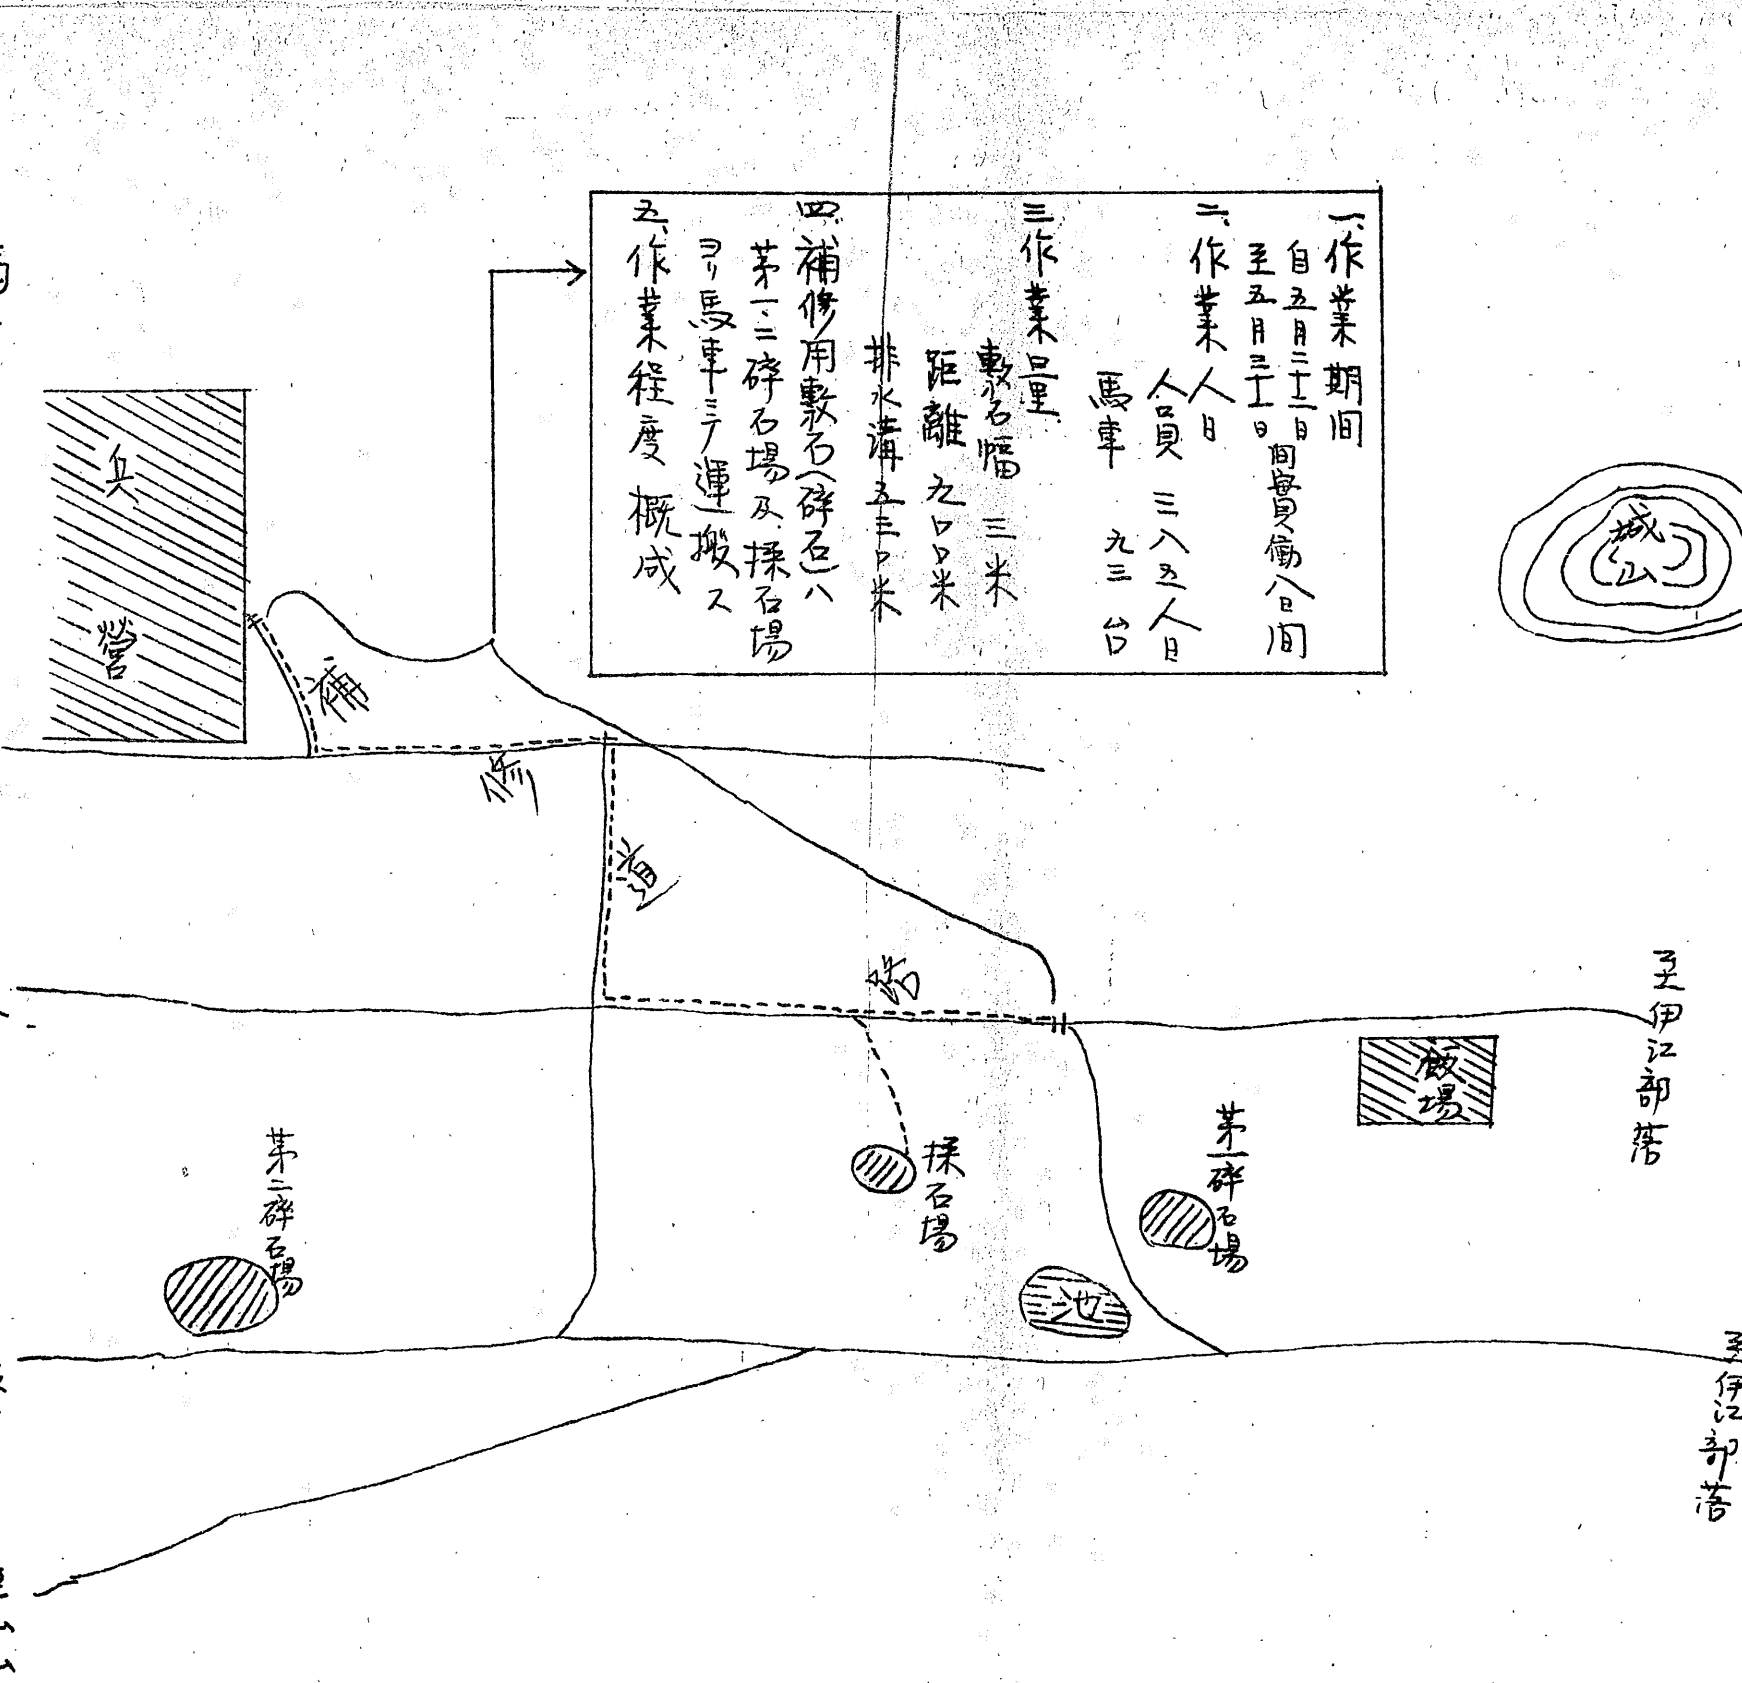 一、作業期间
自五月二十二日
至五月三十一日
间實働八日间
二、作業人日
人員 三八五人日
馬車 九三台
三作業量
敷石幅 三米
距離 九〇〇米
排水溝五三〇米
四、補修用敷石(碎石)ハ
第一、二碎石場及採石場
ヨリ馬車ニテ運搬ス
五、作業程度 概成
城山
兵営
補修道路
至伊江部落
飯場
第一碎石場
採石場
第二碎石場
池
至伊江部落